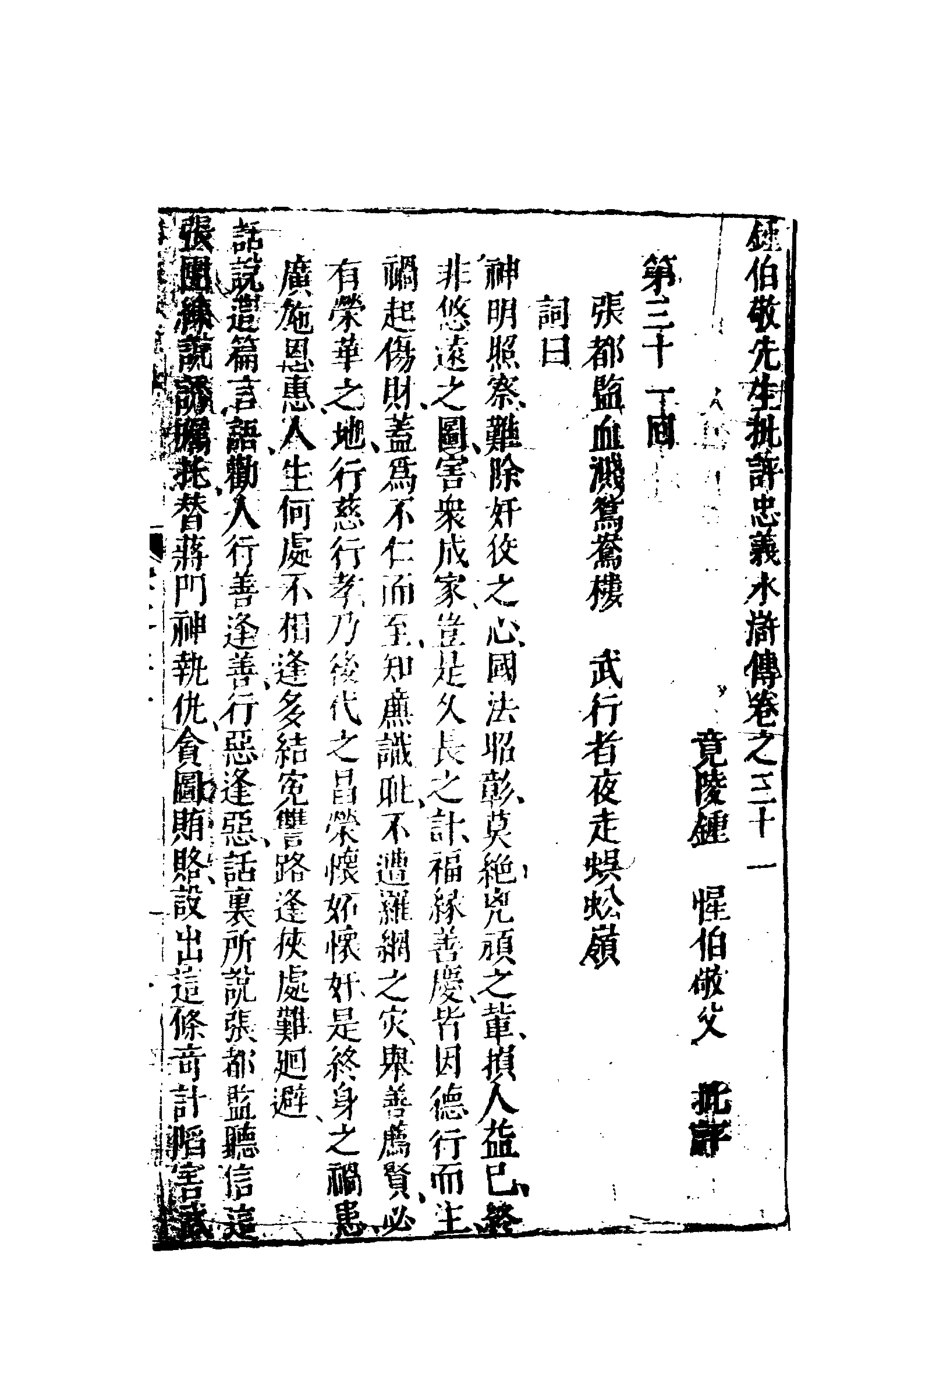 鍾伯敬先生批評忠義水滸傳卷之三十一
竟陵鍾　惺伯敬父　批評
第三十一囘
張都監血濺鴛鴦樓　武行者夜走蜈蚣嶺
詞曰
神明照察、難除奸佞之心、國法昭彰、莫絶兇頑之輩、損人益己、終
非悠遠之圖、害衆成家、豈是久長之計、福緣善慶、皆因德行而生、
禍起傷財、蓋爲不仁而至、知廉識耻、不遭羅網之灾、舉善薦賢、必
有榮華之地、行慈行孝、乃後代之昌榮、懷妬懷奸、是終身之禍患、
廣施恩惠、人生何處不相逢、多結寃讐、路逢狹處難廻避、
話說這篇言語、勸人行善逢善、行惡逢惡、話裏所說張都監聽信這
張團練說誘囑托、替蔣門神執仇、貪圖賄賂、設出這條奇計陷害武